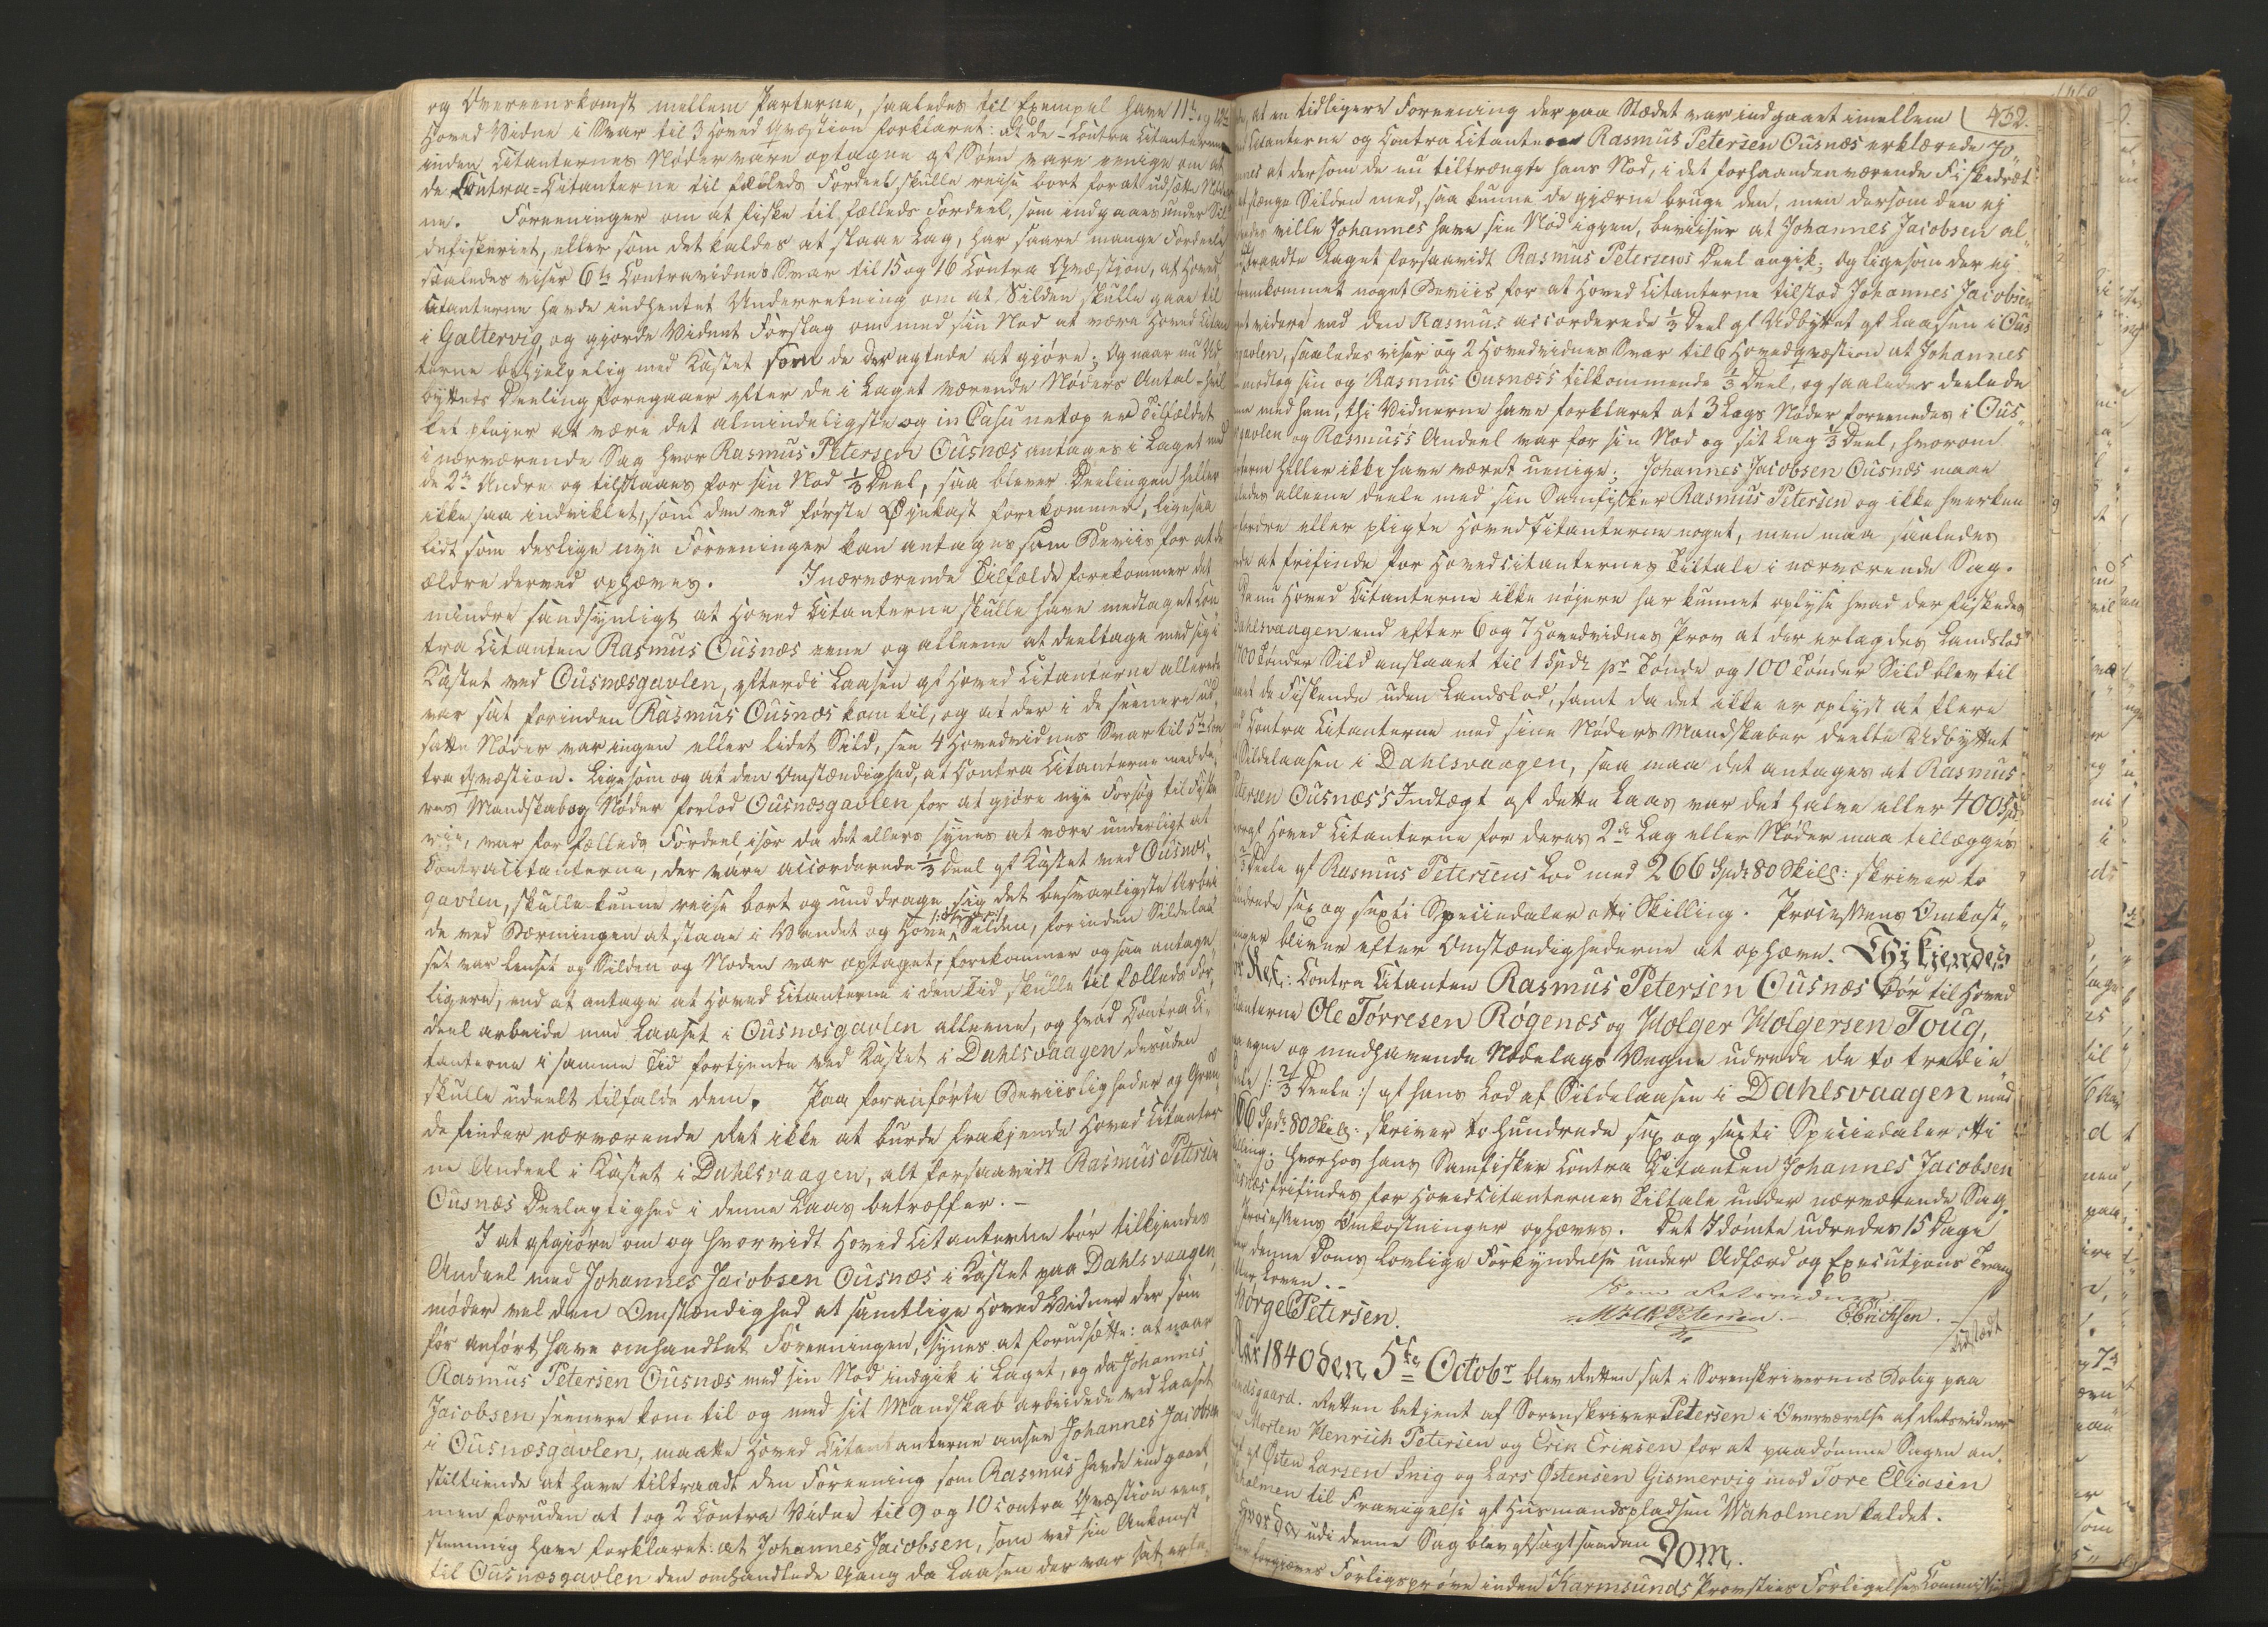 og Overeenskomst mellem Parterne, saaledes til Exempel have 11te og 12te
Hoved Vidne i Svar til 3 Hoved Qvæstion forklaret: At de Contra Citanterne
inden Citanternes Nøder vare optagne af Søen vare eenige om at
de Contra-Citanterne til fælleds Fordeel skulle reise bort for at udsætte Nøder
ne. Foreeninger om at fiske til fælleds Fordeel, som indgaaes under Sil
defiskeriet, eller som det kaldes at staae Lag, har saare mange Fordeele
saaledes viser 6te Contravidnes Svar til 15 og 16 Contra Qvæstion, at Hoved
Citanterne havde indhentet Underretning om at Silden skulle gaae til
i Galtevig og gjorde Vidnet Forslag om med sin Nod at være Hoved Citan
terne behjelpelig med Kastet som de der agtede at gjøre; Og naar nu Ud
byttets Deeling foregaaer efter de i Laget værende Nøders Antal - hvil
ket plejer at være det almindeligste og in Casu netop er Tilfældet
i nærværende Sag hvor Rasmus Petersen Ousnæs antages i Laget med
de 2de Andre og tilstaaes for sin Nod 1/3 Deel, saa bliver Deelingen heller
ikke saa indviklet, som den ved første Øjekast forekommer, ligesaa
lidt som deslige nye Foreeninger kan antages som Beviis for at de
ældre derved ophæves. I nærværende Tilfælde forekommer det
mindre sandsynligt at Hoved Citanterne skulle have medtaget Con
tra Citanten Rasmus Ousnæs eene og alleene at deeltage med sig i
Kastet ved Ousnæsgavlen, efterdi Laasen af Hoved Citanterne allerede
var sat forinden Rasmus Ousnæs kom til, og at der i de seenere ud
satte Nøder var ingen eller lidet Sild, see 4 Hovedvidnes Svar til 5te Con
tra Qvæstion. Ligesom og at den Omstændighed, at Contra Citanterne med de
res Mandskab og Nøder forlod Ousnæsgavlen for at gjøre nye Forsøg til Fiske
rie, var for fælleds Fordeel især da det ellers synes at være underligt at
Contracitanterne, der vare accorderede 1/3 Deel af Kastet ved Ousnæs
gavlen, skulle kunne reise bort og unddrage sig det besværligste Arbei
de ved Bærningen at staae i Vandet og Hove Silden, forinden Sildelaa
set var lenset og Silden og Noden var optaget, forekommer og saa antage
ligere, end at antage at Hoved Citanterne i den Tid skulle til fælleds For
deel arbeide med Laaset i Ousnæsgavlen alleene, og hvad Contra Ci
tanterne i samme Tid fortjente ved Kastet i Dahlsvaagen desuden
skulle udeelt tilfalde dem. Paa foranførte Beviisligheder og Grun
de finder nærværende Ret ikke at burde frakjende Hoved Citanter
ne Andeel i Kastet i Dahlsvaagen, alt forsaavidt Rasmus Petersen
Ousnæs Deelagtighed i denne Laas betræffer.-
I at afgjøre om og hvorvidt Hoved Citanterne bør tilkjendes
Andeel med Johannes Jacobsen Ousnæs i Kastet paa Dahlsvaagen,
møder vel den Omstændighed at samtlige Hoved Vidner der som
før anført have omhandlet Foreeningen, synes at forudsætte: at naar
Rasmus Petersen Ousnæs med sin Nod indgik i Laget, og da Johannes
Jacobsen seenere kom til og med sit Mandskab arbeidede ved Laaset
i Ousnæsgavlen, maatte Hoved Citantanterne ansee Johannes Jacobsen
stiltiende at have tiltraadt den Foreening som Rasmus havde indgaaet,
men foruden at 1 og 2 Contra Vidne til 9 og 10 contra Qvæstion eens
stemmig have forklaret: at Johannes Jacobsen, som ved sin Ankomst
til Ousnæsgavlen den omhandlede Gang da Laasen der var sat, erfa
432.
at en tidligere Foreening der paa Stædet var indgaaet imellem
Citanterne og Contra Citanteren Rasmus Petersen Ousnæs erklærede Jo
at dersom de nu tiltrængte hans Nod, i det forhaandenværende Fiskedræt
stænge Silden med, saa kunne de gjærne bruge den, men dersom den ej
ville Johannes have sin Nod igjen, beviiser at Johannes Jacobsen al
traadte Laget forsaavidt Rasmus Petersens Deel angik; Og ligesom der ej
fremkommet noget Beviis for at Hoved Citanterne tilstod Johannes Jacobsen
videre end den Rasmus accorderede 1/3 Deel af Udbyttet af Laasen i Ous
gavlen, saaledes viser og 2 Hovedvidnes Svar til 6 Hovedqvæstion at Johannes
modtog sin og Rasmus Ousnæs's tilkommende 1/3 Deel, og saaledes deelede
med ham, thi Vidnerne have forklaret at 3 Lags Nøder foreenedes i Ous
gavlen og Rasmus's Andeel var for sin Nod og sit Lag 1/3 Deel, hvorom
heller ikke have været uenige; Johannes Jacobsen Ousnæs maae
ledes alleene deele med sin Samfisker Rasmus Petersen og ikke hverken
fordre eller pligte Hovedcitanterne noget, men maa saaledes
at frifinde for Hovedcitanternes Tiltale i nærværende Sag.
Da nu Hoved Citanterne ikke nøjere har kunnet oplyse hvad der fiskedes
Dahlsvaagen end efter 6 og 7 Hovedvidnes Prov at der erlagdes Landslod
700 Tønder Sild anslaaet til 1 Spdr pr Tønde og 100 Tønder Sild blev til
de Fiskende uden Landslod, samt da det ikke er oplyst at flere
Contra Citanterne med sine Nøders Mandskaber deelte Udbyttet
Sildelaasen i Dahlsvaagen, saa maa det antages at Rasmus
Petersen Ousnæs's Indtægt af dette Laas var det halve eller 400 Spd
Hoved Citanterne for deres 2de Lag eller Nøder maa tillægges
2/3 Deele af Rasmus Petersens Lod med 266 Spdr 80 Skill: skriver to
hundrede sex og sexti Speciedaler otti Skilling. Processens Omkost
ninger bliver efter Omstændighederne at ophæve. Thi kjendes
for Ret: Contra Citanten Rasmus Petersen Ousnæs bør til Hoved
Citanterne Ole Torresen Røgenæs og Holger Holgersen Toug,
egne og medhavende Nødelags Vegne udrede de to tredie
/: 2/3 Deele :/ af hans Lod af Sildelaasen i Dahlsvaagen med
266 Spdr 80 Skill: skriver to hundrede sex og sexti Speciedaler otti
Skilling; hvorhos hans Samfisker Contra Citanten Johannes Jacobsen
Ousnæs frifindes for Hovedcitanternes Tiltale under nærværende Sag.
Processens Omkostninger ophæves. Det Idømte udredes 15 Dage
denne Doms lovlige Forkyndelse under Adfærd og Executions Tvang
efter Loven.-
Som Retsvidner
Børge Petersen. M H Petersen.- E Erichsen.-
Udstædt
Aar 1840 den 5te Octobr blev Retten sat i Sorenskriverens Bolig paa
gaard. Retten betjent af Sorenskriver Petersen i Overværelse af Retsvidner
Morten Henrich Petersen og Erik Eriksen for at paadømme Sagen an
af Østen Larsen Snig og Lars Østensen Gismervig mod Tore Eliasen
holmen til Fravigelse af Husmandspladsen Waholmen kaldet.
Hvorda udi denne Sag blev afsagt saadan Dom.
forgjæves Forligsprøve inden Karmsunds Provsties Forligelses Commission